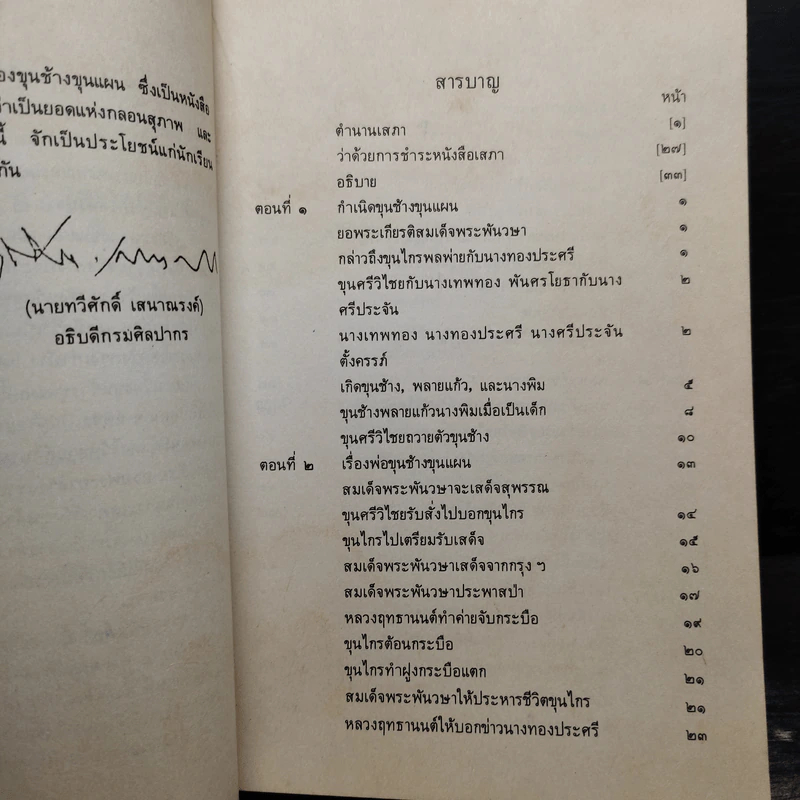 องขุนช้างขุนแผน ซึ่งเป็นหนังสือ
าเป็นยอดแห่งกลอนสุภาพ และ
นี้ จักเป็นประโยชน์แก่นักเรียน
กัน
(นายทวีศักดิ์ เสนาณรงค์)
อธิบดีกรมศิลปากร
สารบาญ
หน้า
ตำนานเสภา [๑]
ว่าด้วยการชำระหนังสือเสภา [๒๗]
อธิบาย [๓๓]
ตอนที่ ๑ กำเนิดขุนช้างขุนแผน ๑
ยอพระเกียรติสมเด็จพระพันวษา ๑
กล่าวถึงขุนไกรพลพ่ายกับนางทองประศรี ๑
ขุนศรีวิไชยกับนางเทพทอง พันศรโยธากับนาง ๒
ศรีประจัน
นางเทพทอง นางทองประศรี นางศรีประจัน ๒
ตั้งครรภ์
เกิดขุนช้าง, พลายแก้ว, และนางพิม ๕
ขุนช้างพลายแก้วนางพิมเมื่อเป็นเด็ก ๘
ขุนศรีวิไชยถวายตัวขุนช้าง ๑๐
ตอนที่ ๒ เรื่องพ่อขุนช้างขุนแผน ๑๓
สมเด็จพระพันวษาจะเสด็จสุพรรณ
ขุนศรีวิไชยรับสั่งไปบอกขุนไกร ๑๔
ขุนไกรไปเตรียมรับเสด็จ ๑๕
สมเด็จพระพันวษาเสด็จจากกรุง ฯ ๑๖
สมเด็จพระพันวษาประพาสป่า ๑๗
หลวงฤทธานนต์ทำค่ายจับกระบือ ๑๙
ขุนไกรต้อนกระบือ ๒๐
ขุนไกรทำฝูงกระบือแตก ๒๑
สมเด็จพระพันวษาให้ประหารชีวิตขุนไกร ๒๑
หลวงฤทธานนต์ให้บอกข่าวนางทองประศรี ๒๓